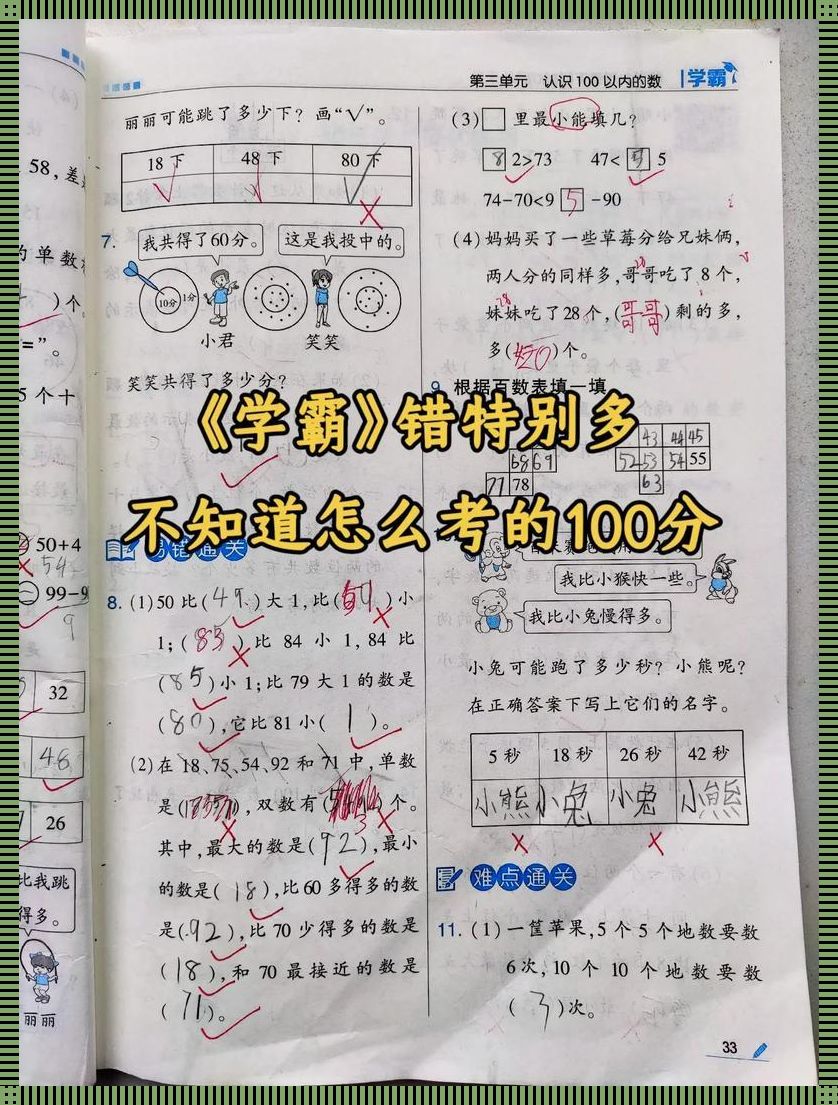 第三单元 认识100以内的数
学霸
丽丽可能跳了多少下?画“√”。
18下 48下 80下
7.
我共得了60分。
这是我投中的。
10分
1分
小君 笑笑
笑笑共得了多少分?
易错通关
8. (1)50比(49)大1,比( )小
1;(85)比84小1,84比
(85)小1;比79大1的数是
(80),它比81小(1)。
(2)在18、75、54、92和71中,单数
是( ),双数有( 3 )个。
其中,最大的数是(92),最小
的数是(18),比60多得多的数
是(92),比70少得多的数是
(18),和70最接近的数是
(71)。
(3)□里最小能填几?
8 2>73 47< 5 5
74-70<9 5 -90
(4)妈妈买了一些草莓分给兄妹俩,
两人分的同样多,哥哥吃了8个,
妹妹吃了28个,(哥哥)剩的多,
多(20)个。
9. 根据百数表填一填
43 44 45
68 69
52 53 54 55
77 78
63
我比小猴快一些。
我比小兔慢得多。
小兔可能跑了多少秒?小熊呢?
在正确答案下写上它们的名字。
5秒 18秒 26秒 42秒
小熊 小兔 小兔 小熊
难点通关
11. (1)一筐苹果,5个5个地数要数
6次,10个10个地数要数
(3)次。
33
58,差
的单数
)个
=”。
5个十
50+4
54
99-9
9
32
48
26
比我跳
得多。
丽丽
《学霸》错特别多
不知道怎么考的100分